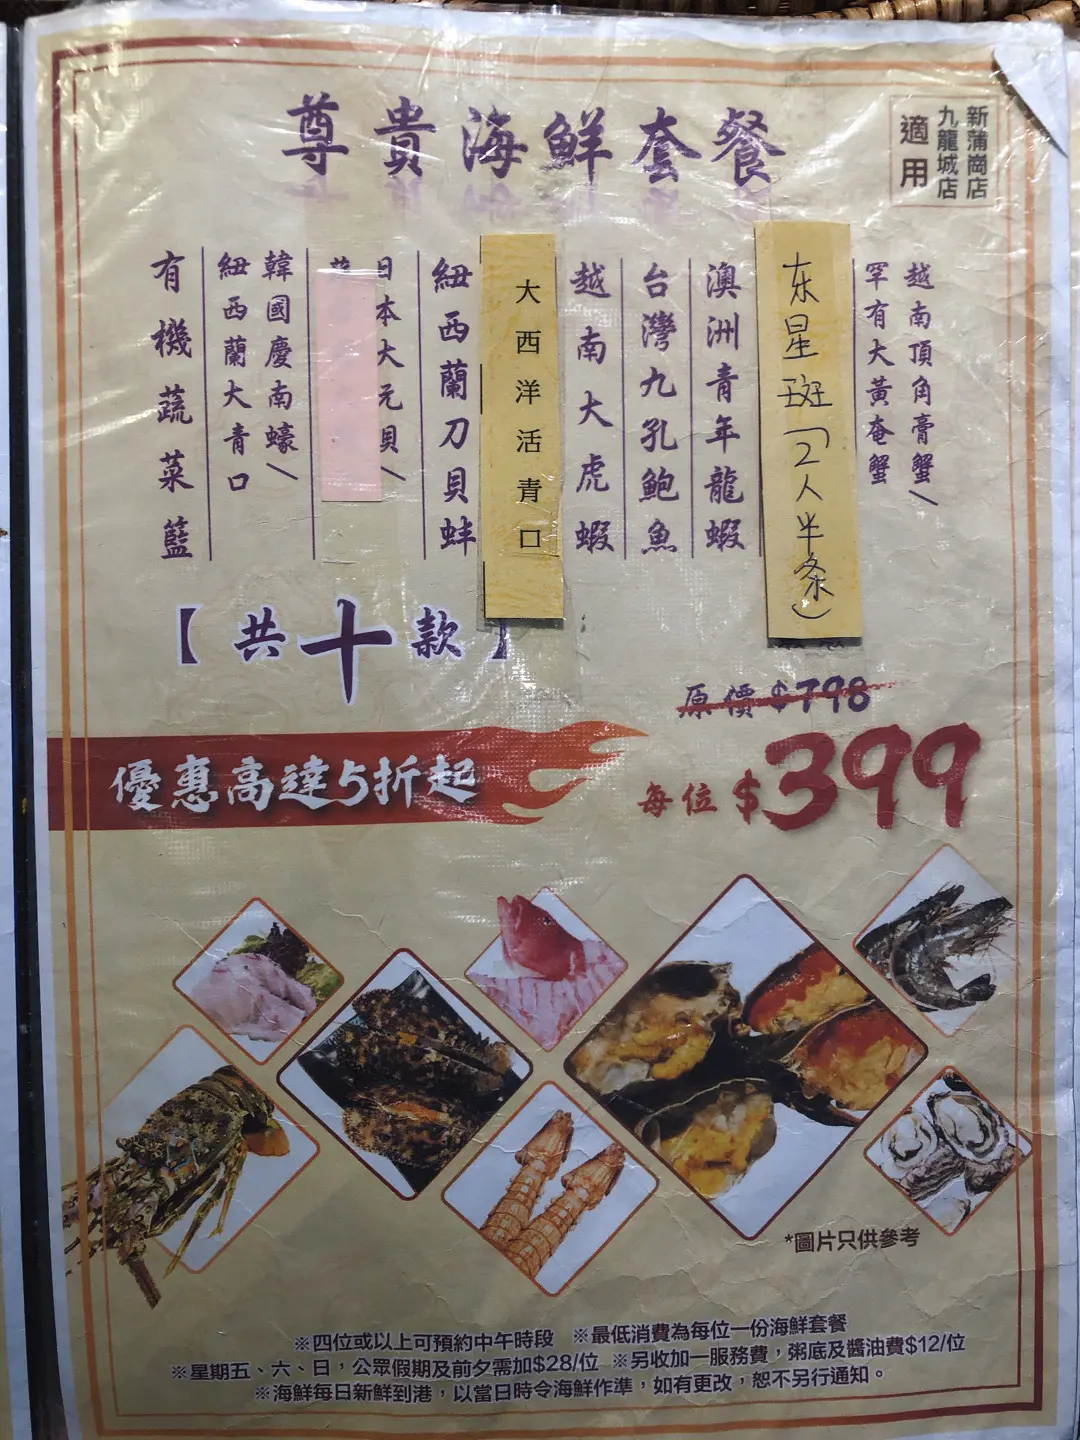 尊貴海鮮套餐
新蒲崗店
九龍城店
適用
越南頂角膏蟹/
罕有大黃奄蟹
东星斑(2人半条)
澳洲青年龍蝦
台灣九孔鮑魚
越南大虎蝦
大西洋活青口
紐西蘭刀貝蚌
日本大元貝/
韓國慶南蠔/
紐西蘭大青口
有機蔬菜籃
【共十款】
原價$798
優惠高達5折起
每位$399
*圖片只供參考
※四位或以上可預約中午時段 ※最低消費為每位一份海鮮套餐
※星期五、六、日，公眾假期及前夕需加$28/位 ※另收加一服務費，粥底及醬油費$12/位
※海鮮每日新鮮到港，以當日時令海鮮作準，如有更改，恕不另行通知。